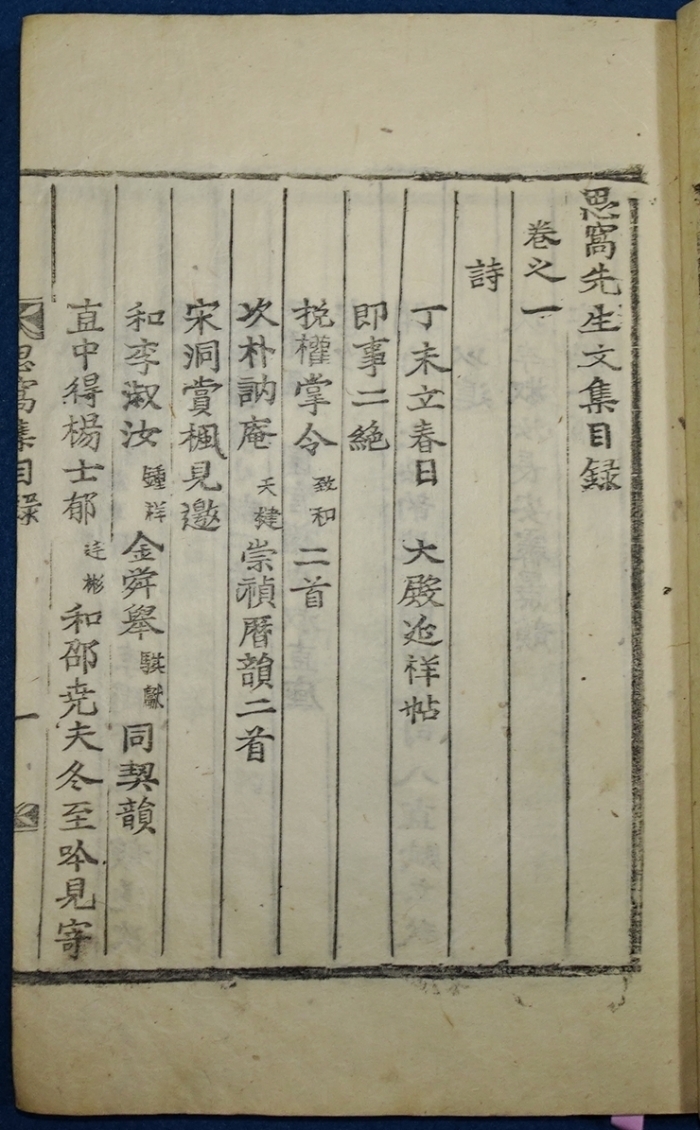 思窩先生文集目録
卷之一
詩
丁未立春日 大殿延祥帖
即事二絶
挽權掌令致和二首
次朴訥庵天健崇禎曆韻二首
宋洞賞楓見邀
和李淑汝鍾祥金舜擧騏獻同契韻
直中得楊士郁廷彬和邵尭夫冬至吟見寄
思窩集目録 一